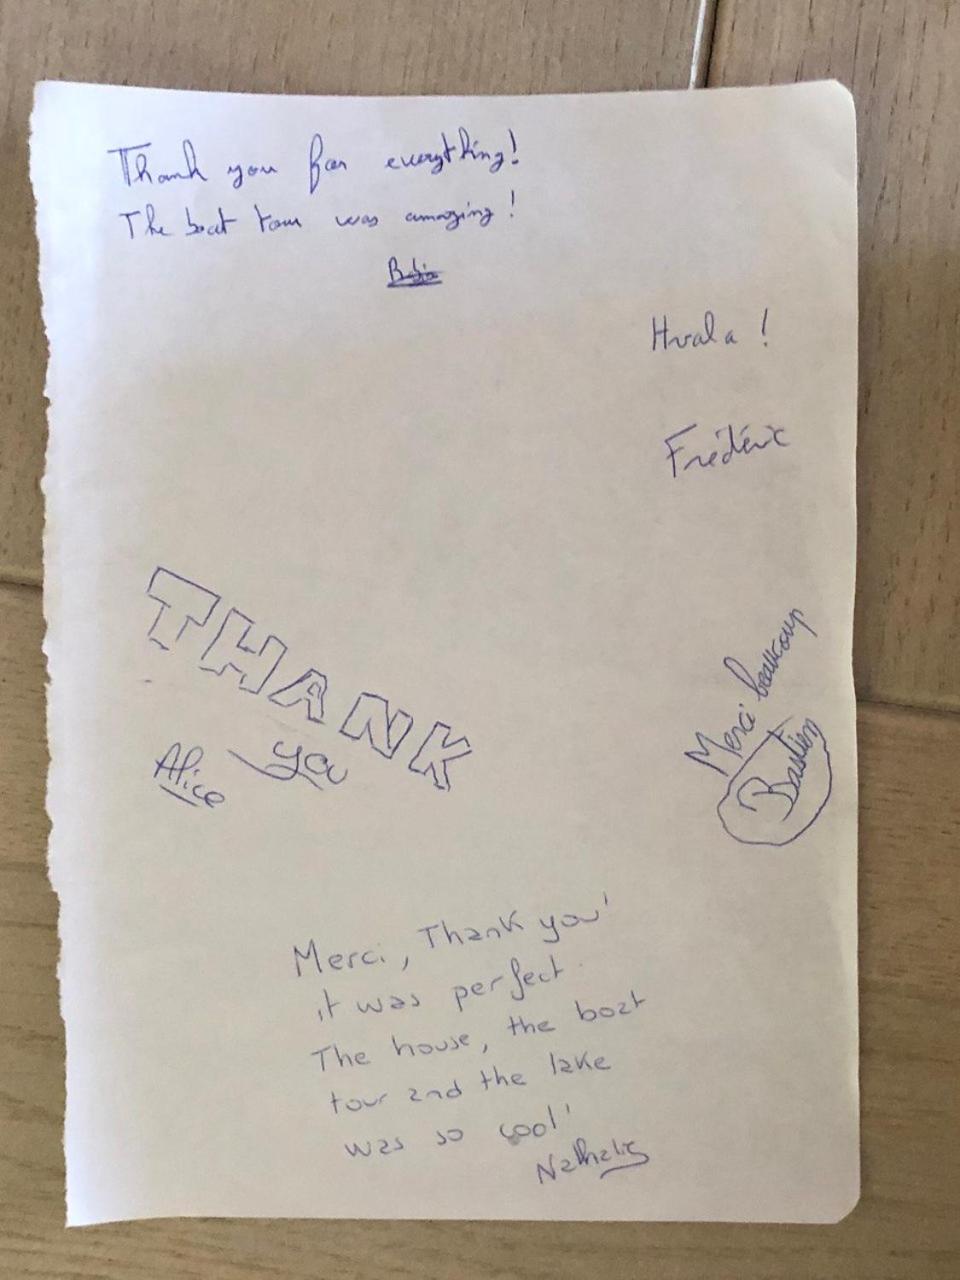 Thank you for everything!
The boat tour was amazing!
Hvala!
Frédéric
THANK
you
Alice
Merci beaucoup
Bastien
Merci, Thank you!
it was perfect.
The house, the boat
tour and the lake
was so cool!
Nathalie